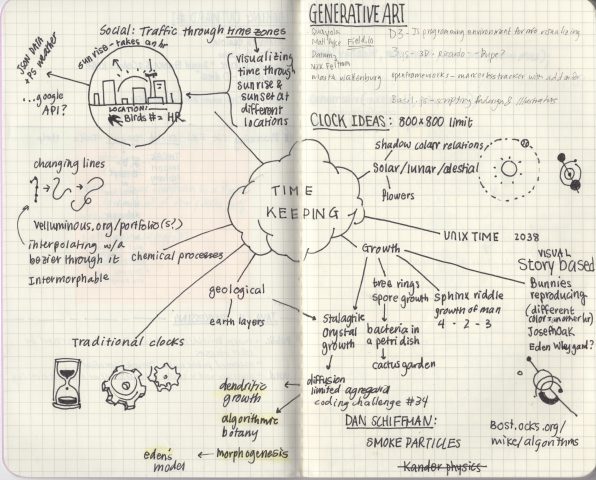 Social: Traffic through time zones
sunrise - takes an hr
JSON DATA
+ PS weather
...google
API?
LOCATION:
Birds #= HR
visualizing
time throug
sunrise &
sunset at
different
locations
changing lines
velluminous.org/portfolio(s?)
interpolating w/a
bezier through it
Intermorphable
chemical processes
geological
earth layers
Traditional clocks
TIME
KEEPING
dendritic
growth
algorithmic
botany
morphogenesis
eden's
model
GENERATIVE ART
Quayola
Matt Pyke Field.io
Marita Walkenburg
D3 - Is programming environment for info visualizing
3.js - 3D -
Basil.js - scripting Indesign & Illustrator
CLOCK IDEAS: 800x800 limit
shadow color relations
Solar/lunar/celestial
Flowers
UNIX TIME 2038
Growth
tree rings
spore growth
bacteria in
a petri dish
cactus garden
Sphinx riddle
growth of man
4 - 2 - 3
VISUAL
Story based
Bunnies
reproducing
(different
color = another hr)
Joseph Oak
Eden Weygard?
Stalagtite
crystal
growth
diffusion
limited aggregated
coding challenge #34
DAN SCHIFFMAN:
SMOKE PARTICLES
Kander physics
Bost.ocks.org/
mike/algorithms